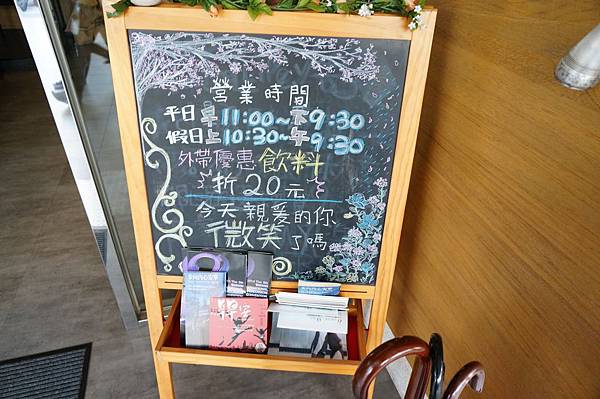 營業時間
平日 早 11:00~下 9:30
假日 上 10:30~午 9:30
外帶優惠 飲料
折 20 元
今天親愛的你
微笑了嗎